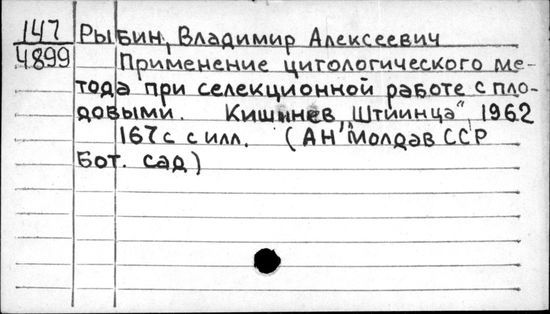 147 Рыбин, Владимир Алексеевич
4899 Применение цитологического ме-
тода при селекционной работе с пло-
довыми. Кишинев, "Штиинца", 1962
167с с илл. (АН Молдав ССР
Бот. сад)